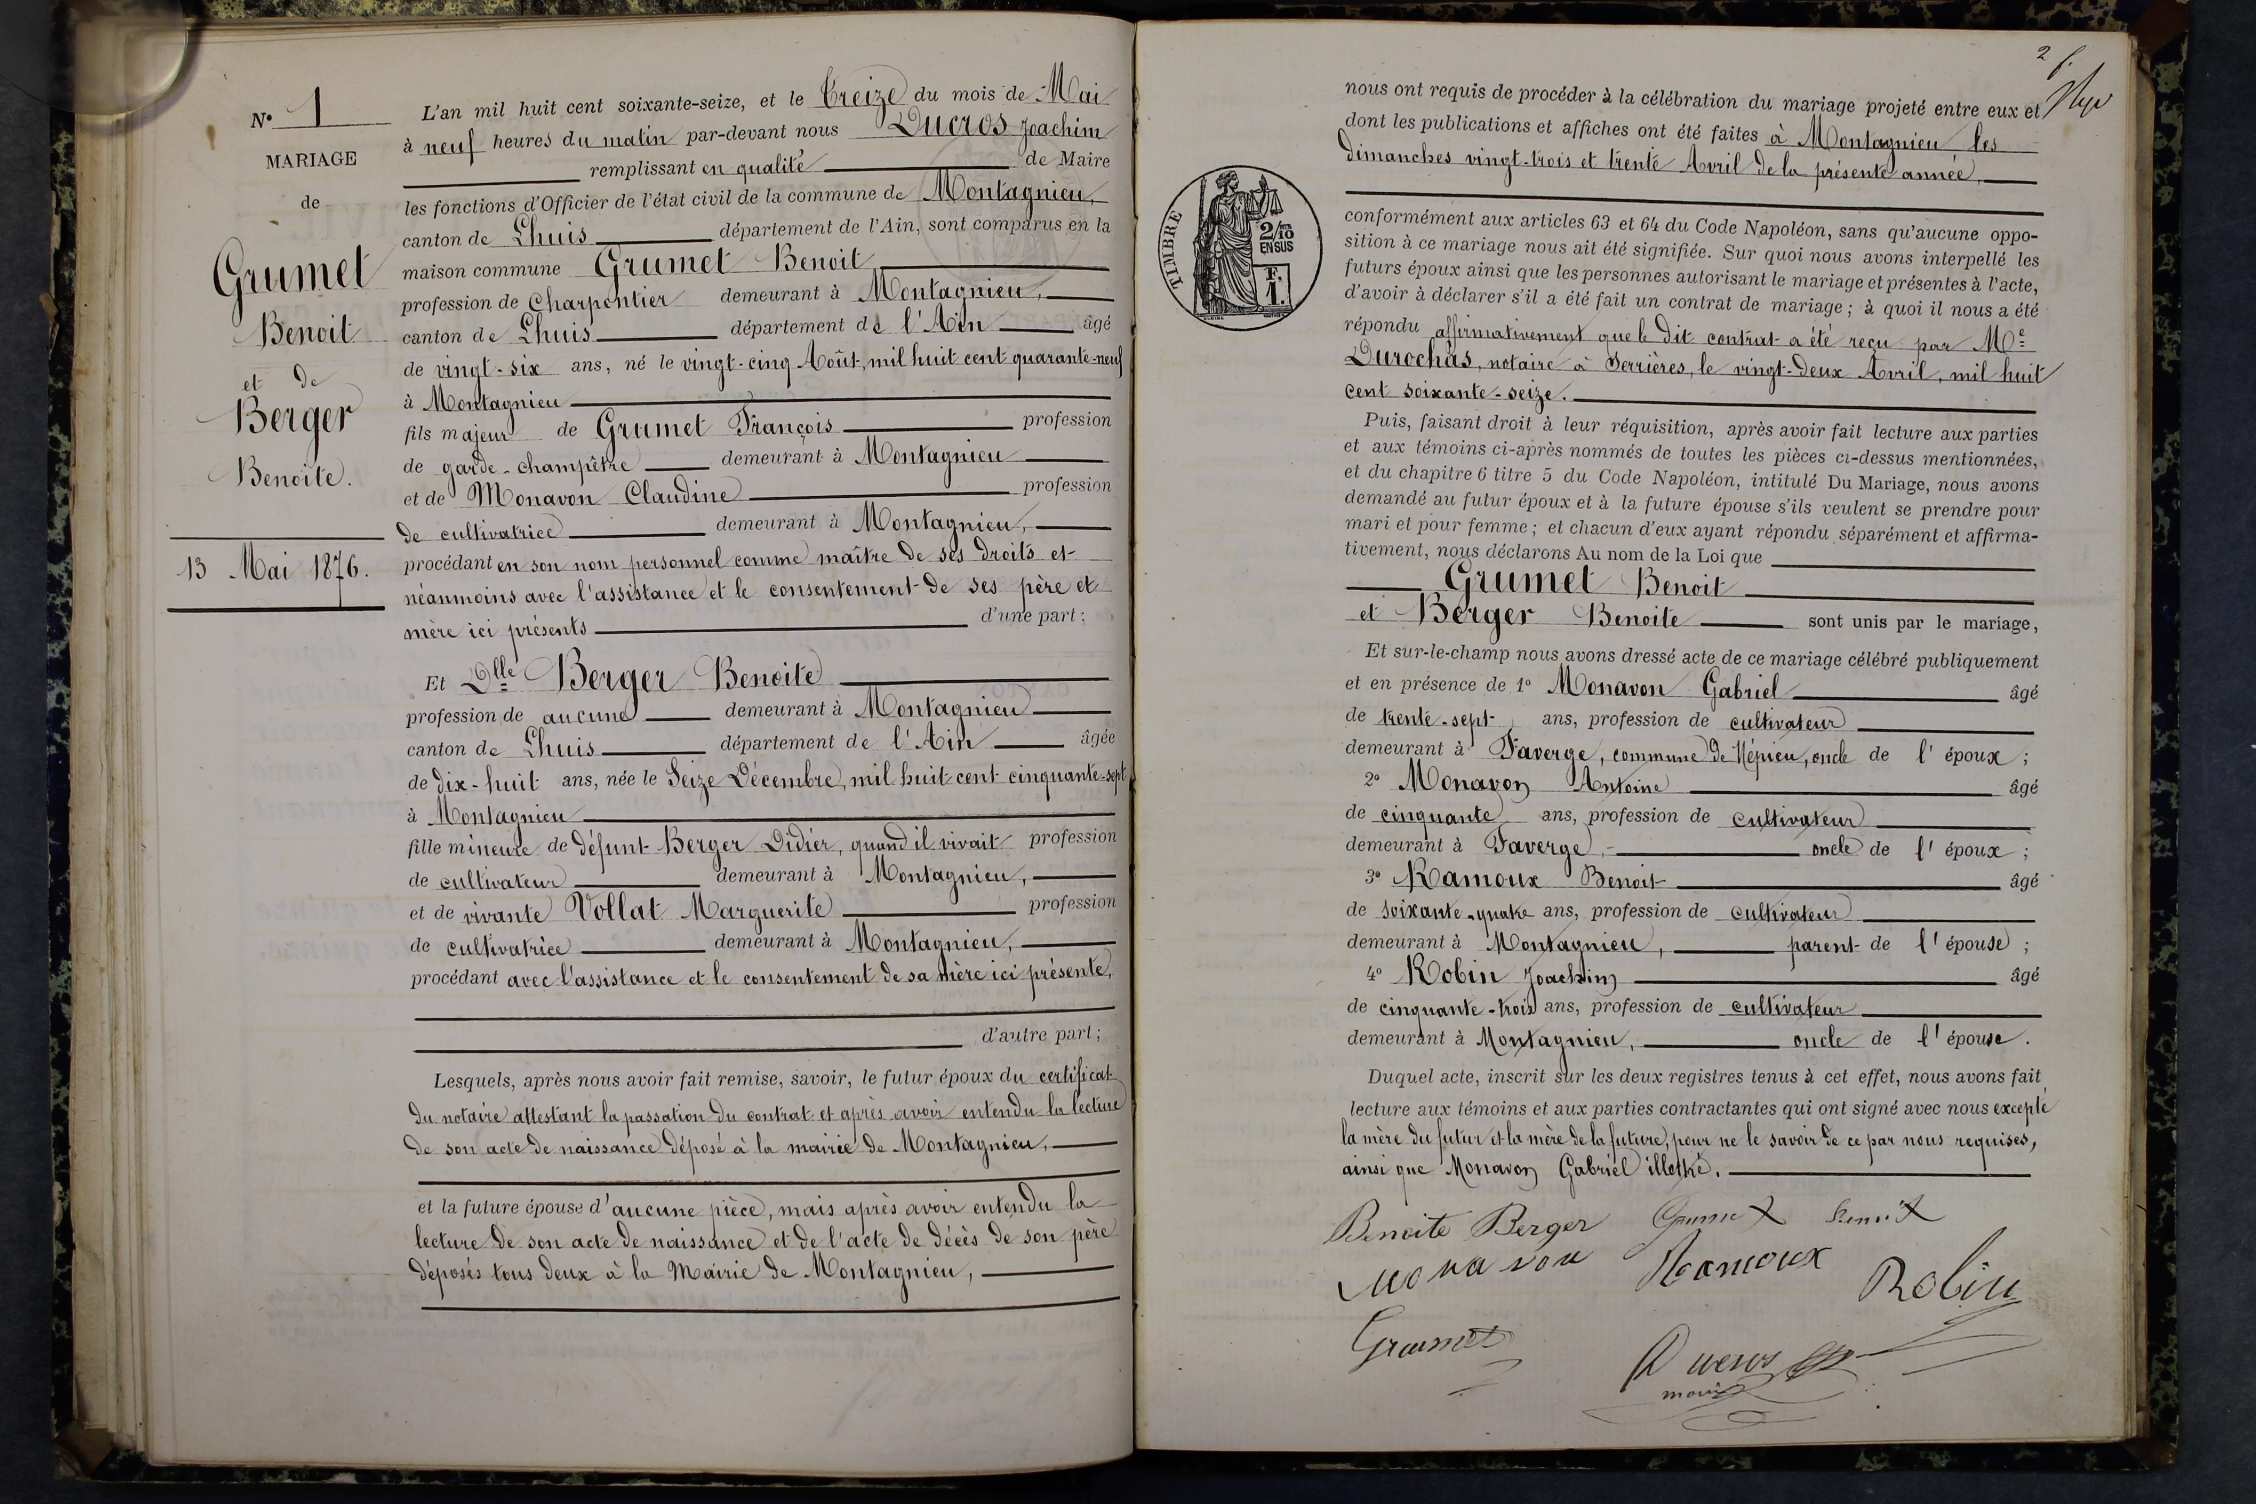 N° 1
MARIAGE
de
Grumet
Benoit
et de
Berger
Benoite.
13 Mai 1876.
L'an mil huit cent soixante-seize, et le Treize du mois de Mai
à neuf heures du matin par-devant nous Ducros Joachim
remplissant en qualité de Maire
les fonctions d'Officier de l'état civil de la commune de Montagnieu,
canton de Lhuis département de l'Ain, sont comparus en la
maison commune Grumet Benoit
profession de Charpentier demeurant à Montagnieu,
canton de Lhuis département de l'Ain âgé
de vingt-six ans, né le vingt-cinq Août, mil huit cent quarante-neuf
à Montagnieu
fils majeur de Grumet François profession
de garde-champêtre demeurant à Montagnieu
et de Monavon Claudine profession
de cultivatrice demeurant à Montagnieu,
procédant en son nom personnel comme maître de ses droits et
néanmoins avec l'assistance et le consentement de ses père et
mère ici présents d'une part;
Et Dlle Berger Benoite
profession de aucune demeurant à Montagnieu
canton de Lhuis département de l'Ain âgée
de dix-huit ans, née le Seize Décembre, mil huit cent cinquante-sept
à Montagnieu
fille mineure de défunt Berger Didier, quand il vivait profession
de cultivateur demeurant à Montagnieu,
et de vivante Vollat Marguerite profession
de cultivatrice demeurant à Montagnieu,
procédant avec l'assistance et le consentement de sa mère ici présente,
d'autre part;
Lesquels, après nous avoir fait remise, savoir, le futur époux du certificat
du notaire attestant la passation du contrat et après avoir entendu la lecture
de son acte de naissance déposé à la mairie de Montagnieu,
et la future épouse d'aucune pièce, mais après avoir entendu la
lecture de son acte de naissance et de l'acte de décès de son père
déposés tous deux à la Mairie de Montagnieu,
2
nous ont requis de procéder à la célébration du mariage projeté entre eux et
dont les publications et affiches ont été faites à Montagnieu les
dimanches vingt-trois et trente Avril de la présente année,
TIMBRE
2/10
EN SUS
F.
1.
conformément aux articles 63 et 64 du Code Napoléon, sans qu'aucune oppo-
sition à ce mariage nous ait été signifiée. Sur quoi nous avons interpellé les
futurs époux ainsi que les personnes autorisant le mariage et présentes à l'acte,
d'avoir à déclarer s'il a été fait un contrat de mariage; à quoi il nous a été
répondu affirmativement que le dit contrat a été reçu par Me
Durochas, notaire à Serrières, le vingt-deux Avril, mil huit
cent soixante-seize.
Puis, faisant droit à leur réquisition, après avoir fait lecture aux parties
et aux témoins ci-après nommés de toutes les pièces ci-dessus mentionnées,
et du chapitre 6 titre 5 du Code Napoléon, intitulé Du Mariage, nous avons
demandé au futur époux et à la future épouse s'ils veulent se prendre pour
mari et pour femme; et chacun d'eux ayant répondu séparément et affirma-
tivement, nous déclarons Au nom de la Loi que
Grumet Benoit
et Berger Benoite sont unis par le mariage,
Et sur-le-champ nous avons dressé acte de ce mariage célébré publiquement
et en présence de 1° Monavon Gabriel âgé
de trente-sept ans, profession de cultivateur
demeurant à Faverge, commune de Vépieu, oncle de l'époux;
2° Monavon Antoine âgé
de cinquante ans, profession de cultivateur
demeurant à Faverge, oncle de l'époux;
3° Ramoux Benoit âgé
de soixante-quatre ans, profession de cultivateur
demeurant à Montagnieu, parent de l'épouse;
4° Robin Joachim âgé
de cinquante-trois ans, profession de cultivateur
demeurant à Montagnieu, oncle de l'épouse.
Duquel acte, inscrit sur les deux registres tenus à cet effet, nous avons fait
lecture aux témoins et aux parties contractantes qui ont signé avec nous excepté
la mère du futur et la mère de la future, pour ne le savoir de ce par nous requises,
ainsi que Monavon Gabriel illettré.
Benoite Berger Grumet Benoit
monavon Ramoux Robin
Grumet
Ducros
maire